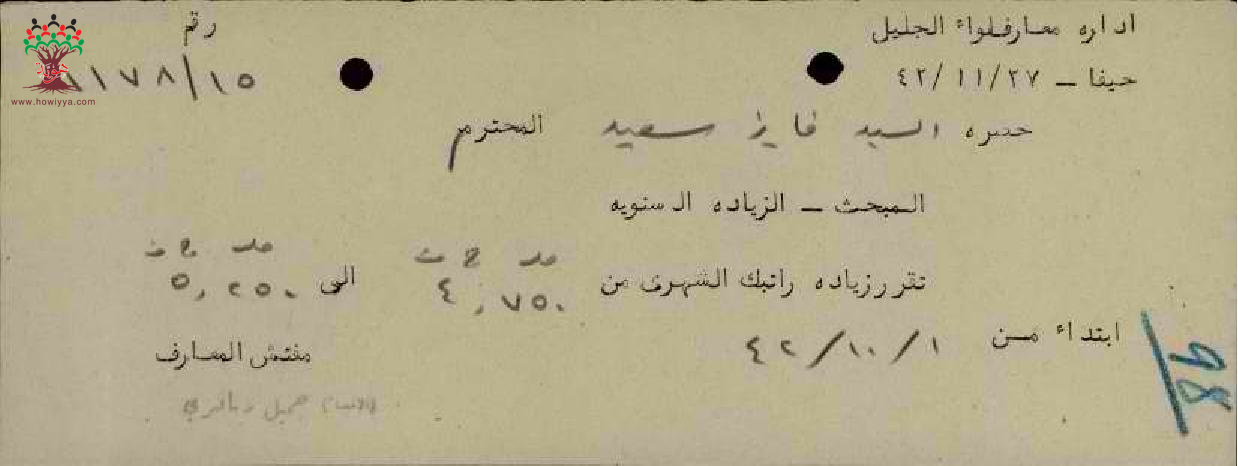 اداره معارف لواء الجليل
رقم
حيفا _ ٤٢/١١/٢٧
١١٧٨/١٥
www.howiyya.com
حضره السيد فايز سعيد المحترم
المبحث _ الزياده السنويه
مد ج ف
مد ج ف
تقرر زياده راتبك الشهرى من ٤,٧٥٠ الى ٥,٢٥٠
ابتداء من ٤٢/١٠/١
مفتش المعارف
98